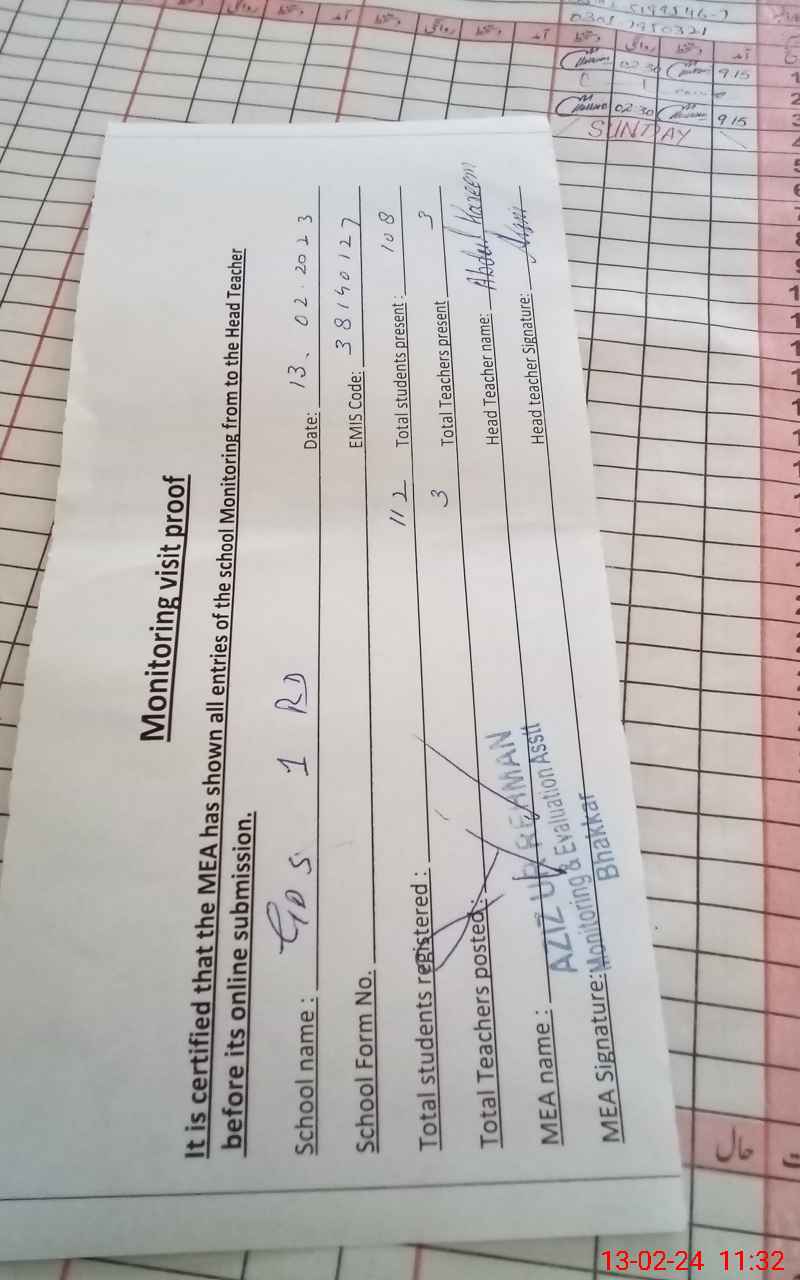 5199546-7
0301-7950321
02:30 9.15
02:30 9 15
SUNDAY
Monitoring visit proof
It is certified that the MEA has shown all entries of the school Monitoring from to the Head Teacher
before its online submission.
School name : GPS 1 RD Date: 13.02.2023
School Form No. EMIS Code: 38140127
Total students registered : 112 Total students present : 108
Total Teachers posted : 3 Total Teachers present 3
MEA name : AZIZ UR REHMAN Head Teacher name: Abdul Kareem
Monitoring & Evaluation Asstt
MEA Signature: Bhakkar Head teacher Signature:
حال
13-02-24 11:32